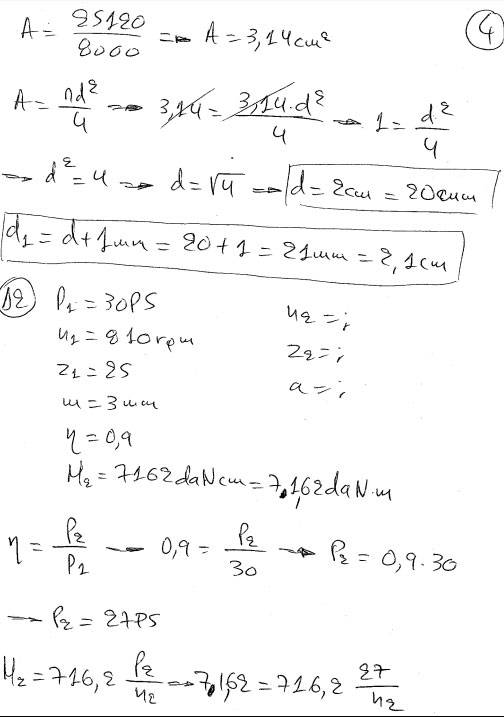 A = 25120/8000 => A = 3,14cm² ④
A = πd²/4 → 3,14 = 3,14·d²/4 → 1 = d²/4
→ d² = 4 → d = √4 → d = 2cm = 20mm
d₁ = d+1mm = 20+1 = 21mm = 2,1cm
Δ2 P₁ = 30PS n₂ = ;
n₁ = 810rpm z₂ = ;
z₁ = 25 a = ;
m = 3mm
η = 0,9
M₂ = 7162daNcm = 7,162daN·m
η = P₂/P₁ → 0,9 = P₂/30 → P₂ = 0,9·30
→ P₂ = 27PS
M₂ = 716,2 P₂/n₂ → 7,162 = 716,2 27/n₂